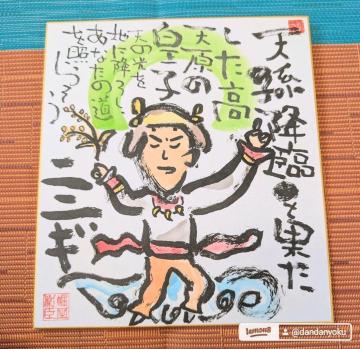 天孫降臨を果た
した高
天原の
皇子
天の光を
地に降ろし、
あなたの道
を照らそう
ニニギ
lemon8
@dandanyoku